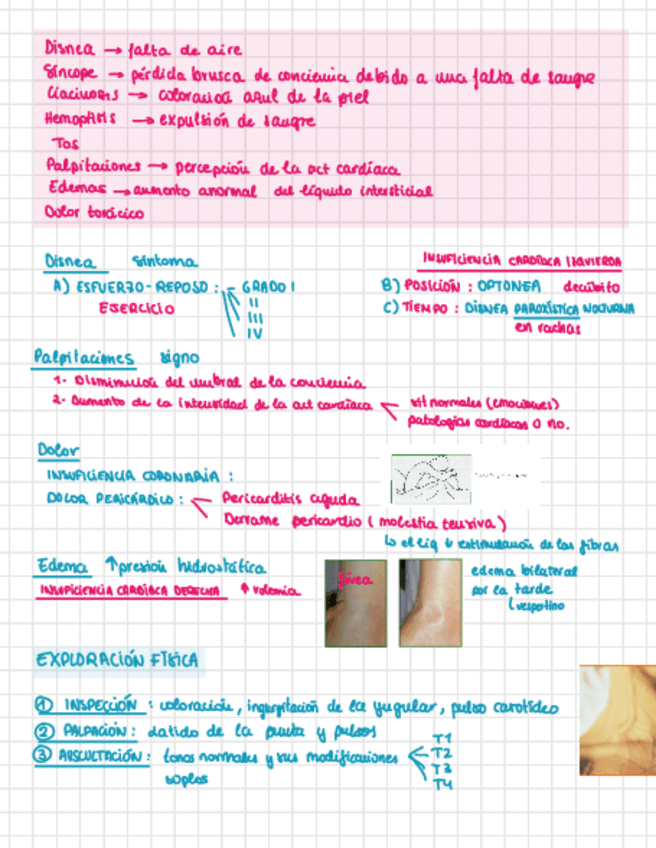 Disnea → falta de aire
Síncope → pérdida brusca de conciencia debido a una falta de sangre
Ciacinosis → coloración azul de la piel
Hemoptisis → expulsión de sangre
Tos
Palpitaciones → percepción de la act cardíaca
Edemas → aumento anormal del líquido intersticial
Dolor torácico
Disnea síntoma
INSUFICIENCIA CARDÍACA IZQUIERDA
A) ESFUERZO - REPOSO : - GRADO I
B) POSICIÓN : OPTONEA decúbito
EJERCICIO
II
C) TIEMPO : DISNEA PAROXÍSTICA NOCTURNA
III
en rachas
IV
Palpitaciones signo
1. Disminución del umbral de la conciencia
2. Aumento de la intensidad de la act cardíaca
sit normales (emociones)
patologías cardíacas o no.
Dolor
INSUFICIENCIA CORONARIA :
DOLOR PERICÁRDICO :
Pericarditis aguda
Derrame pericardio ( molestia tensiva )
↳ el líq estimulación de las fibras
Edema ↑ presión hidrostática
INSUFICIENCIA CARDÍACA DERECHA ↑ volemia
fóvea
edema bilateral
por la tarde
(vespertino
EXPLORACIÓN FÍSICA
① INSPECCIÓN : coloración, ingurgitación de la yugular, pulso carotídeo
② PALPACIÓN : latido de la punta y pulsos
③ AUSCULTACIÓN : tonos normales y sus modificaciones
soplos
T1
T2
T3
T4